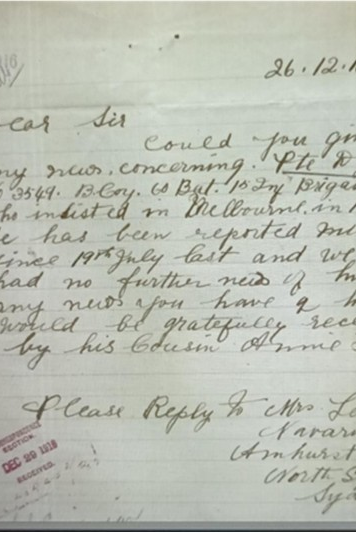 26.12.1
ear Sir
Could you gi
ny news. concerning. Pte D
3549. B. Coy. 60 Bat. 15 Inf Brigad
ho inlisted in Melbourne. in
e has been reported mi
since 19th July last and we
had no further news of h
any news you have
would be gratefully rece
by his Cousin Annie
Please Reply to Mrs L
Navar
Amhurst
North S
Syd
SECTION.
DEC 29 1916
RECEIVED.